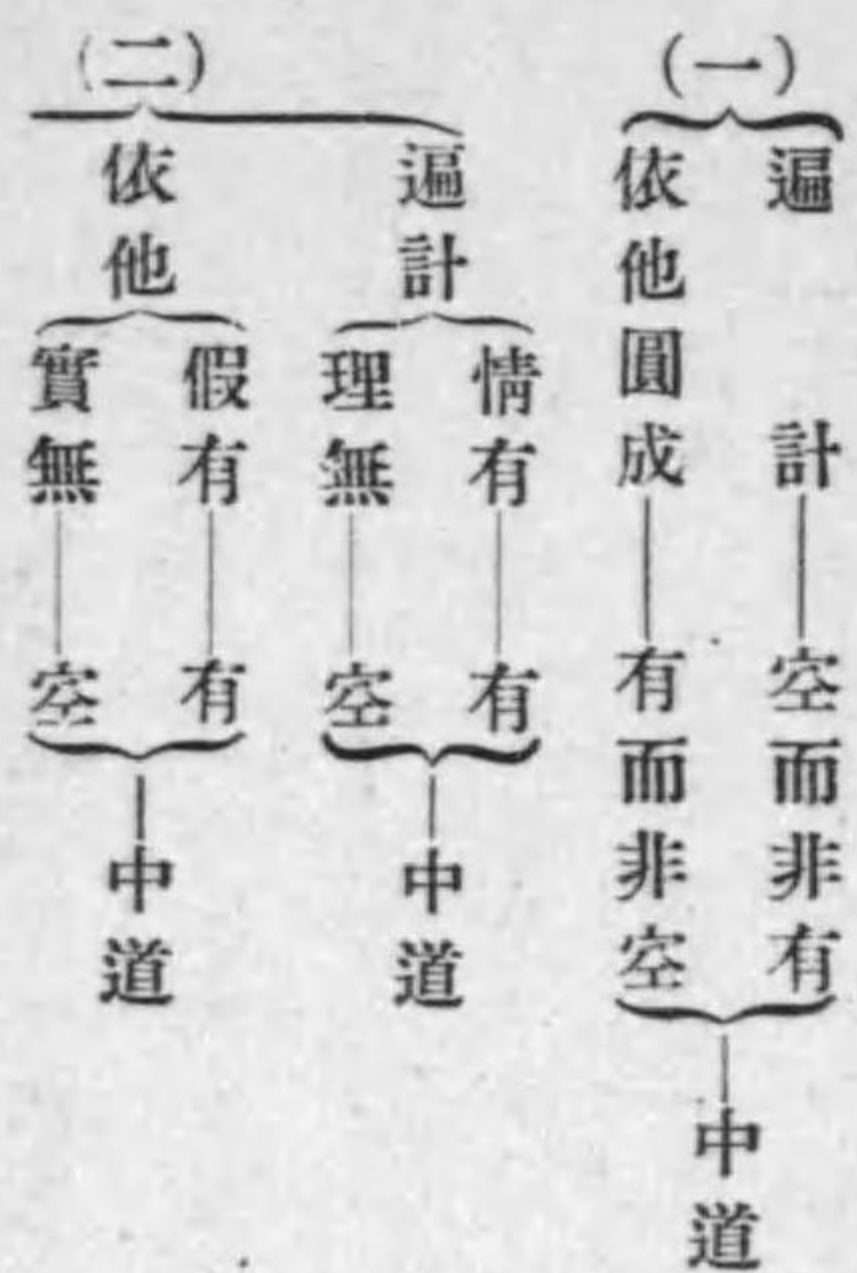 (一)
遍計——空而非有
依他圓成——有而非空
中道
(二)
遍計
情有——有
理無——空
中道
依他
假有——有
實無——空
中道